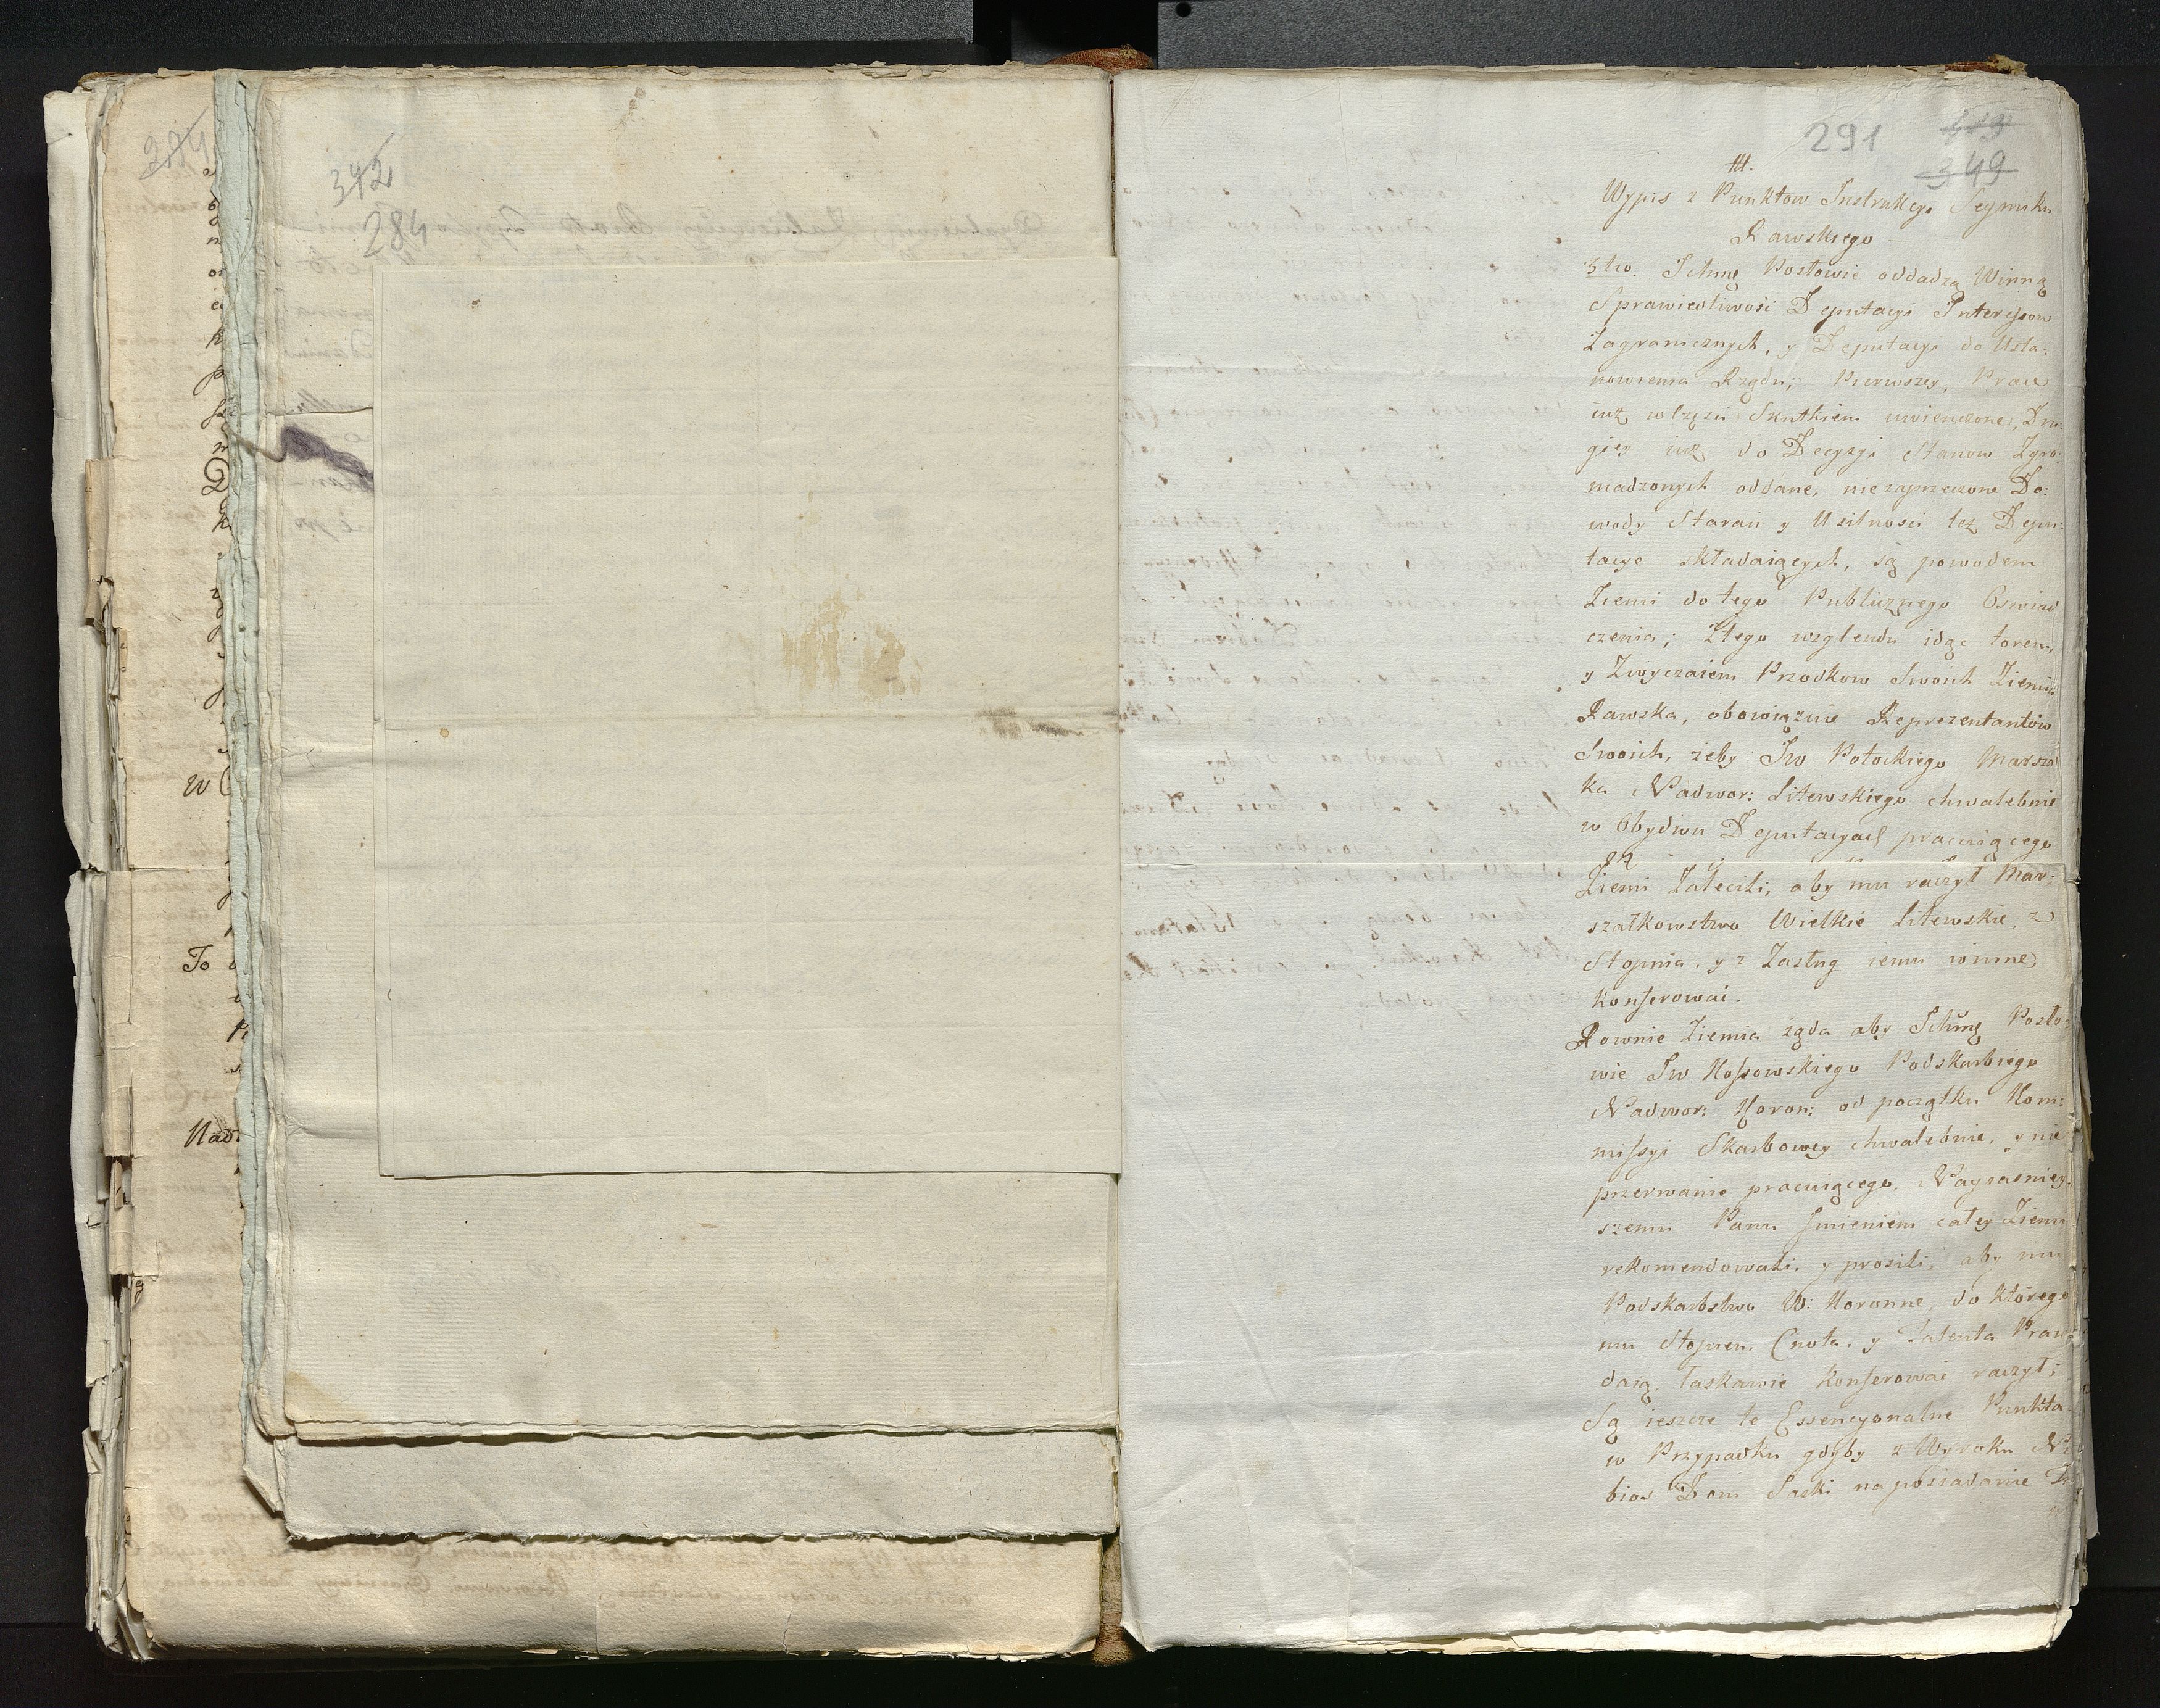 274
342
284
w
To
Nad
291
349
III.
Wypis z Punktow Instrukcyi Seymiku
Rawskiego
3tio. Ichmę Posłowie oddadzą Winną
Sprawiedliwość Deputacyi Interessow
Zagranicznych, y Deputacyi do Usta:
nowienia Rządu; Pierwszey, Prace
iuż w części Skutkiem uwienczone, Dru:
giey iuż do Decyzyi Stanow Zgro:
madzonych oddane, niezaprzeczone Do:
wody Staran y Usilnosci też Depu:
tacye składaiących, są powodem
Ziemi do tego Publicznego Oswiad
czenia; Ztego wzglendu idąc torem,
y Zwyczaiem Przodkow Swoich Ziemia
Rawska, obowiązuie Reprezentantów
Swoich, żeby Jw Potockiego Marszał
ka Nadwor: Litewskiego chwalebnie
w Obydwu Deputacyach pracuiącego
Ziemi Zalecili, aby mu raczył Mar:
szałkowstwo Wielkie Litewskie, z
Stopnia, y z Zasług iemu winne
konferować.
Rownie Ziemia żąda aby Ichmę Posło:
wie Jw Kossowskiego Podskarbiego
Nadwor: Koron: od początku Kom:
missyi Skarbowey chwalebnie, y nie
przerwanie pracuiącego, Nayiasniey:
szemu Panu Imieniem całey Ziemi
rekomendowali, y prosili, aby mu
Podskarbstwo W: Koronne, do którego
mu Stopien, Cnota, y Talenta Prawo
daią, łaskawie konferować raczył;
Są ieszcze te Essencyonalne Punkta
w Przypadku gdyby z Wyroku Ni
bios Dom Saski na posiadanie